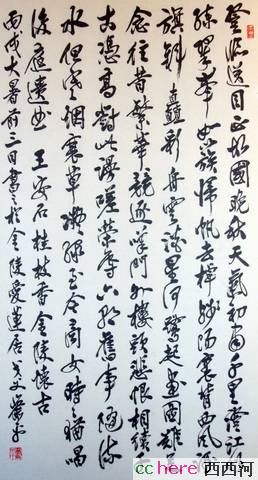 登臨送目正故國晚秋天氣初肅千里澄江似
練翠峰如簇歸帆去棹殘陽裏背西風酒
旗斜矗彩舟雲淡星河鷺起畫圖難足
念往昔繁華競逐嘆門外樓頭悲恨相續千
古憑高對此謾嗟榮辱六朝舊事隨流
水但寒烟衰草凝綠至今商女時時猶唱
後庭遺曲 王安石桂枝香金陵懷古
丙戌大暑前二日書於金陵愛蓮居
cchere 西西河